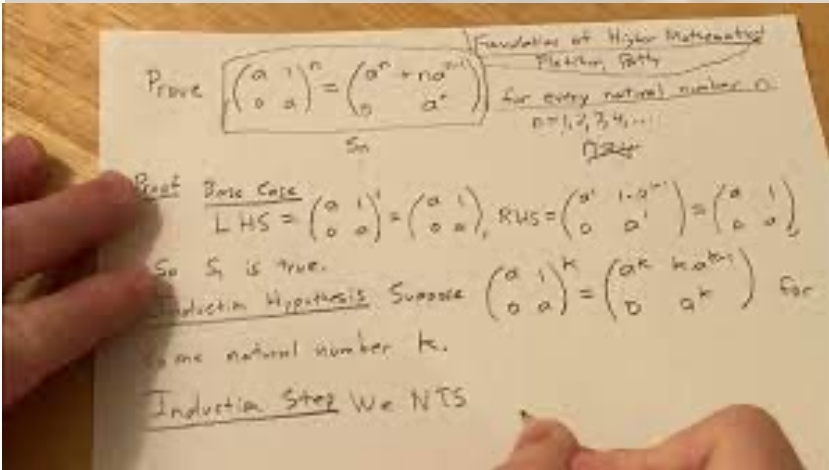 Foundation of Higher Mathematics
Fletcher, Patty
Prove (a 1; 0 a)^n = (a^n + na^(n-1); 0 a^n)
for every natural number n
n=1,2,3,4,...
Sn
Proof Base Case
LHS = (a 1; 0 a)^1 = (a 1; 0 a), RHS = (a^1 1·a^(1-1); 0 a^1) = (a 1; 0 a),
So S1 is true.
Induction Hypothesis Suppose (a 1; 0 a)^k = (a^k ka^(k-1); 0 a^k) for
some natural number k.
Induction Step We NTS